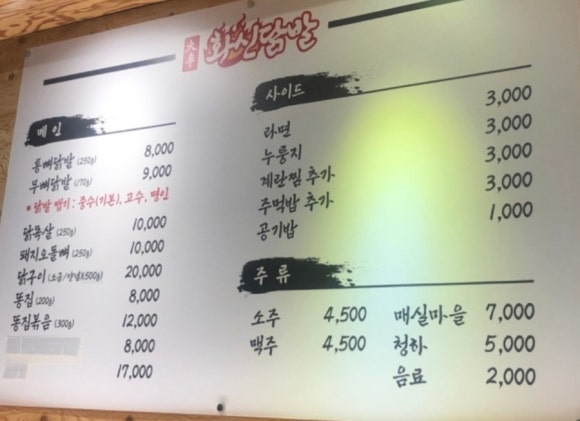 火車 화신닭발
메인
통뼈닭발 (250g) 8,000
무뼈닭발 (170g) 9,000
* 닭발 맵기 : 중수(기본), 고수, 명인
닭목살 (250g) 10,000
돼지오돌뼈 (250g) 10,000
닭구이 (소금/양념X500g) 20,000
똥집 (200g) 8,000
똥집볶음 (300g) 12,000
8,000
17,000
사이드
라면 3,000
누룽지 3,000
계란찜 추가 3,000
주먹밥 추가 3,000
공기밥 1,000
주류
소주 4,500 매실마을 7,000
맥주 4,500 청하 5,000
음료 2,000